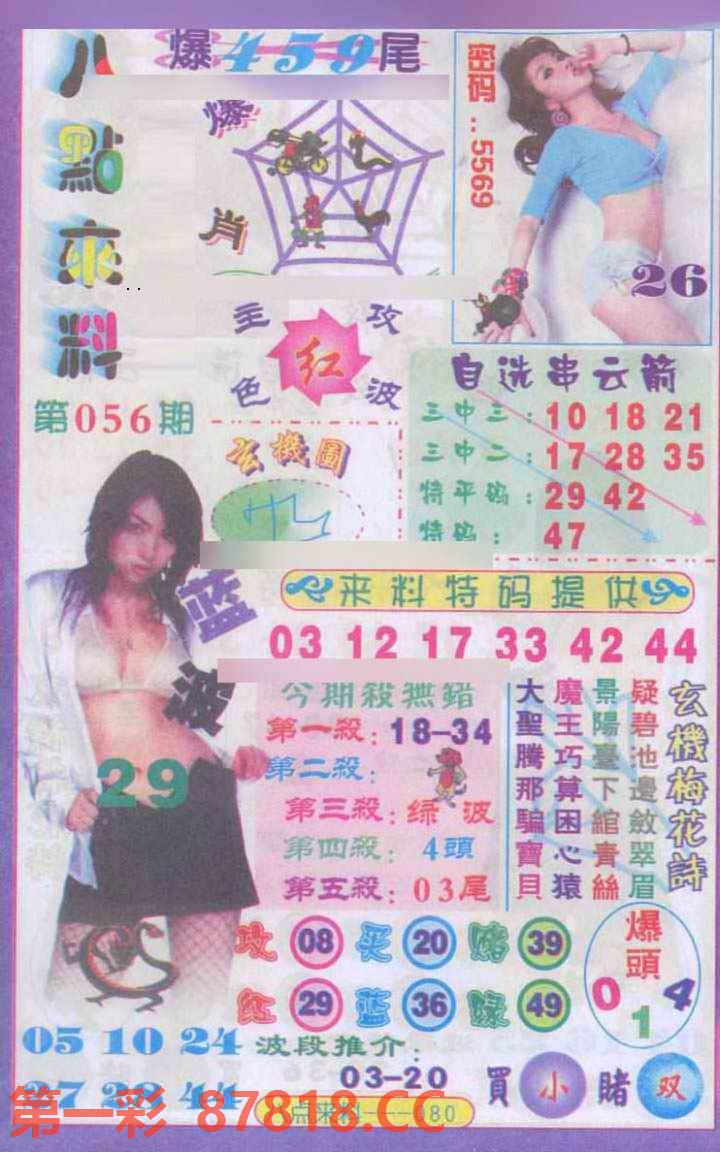 八點來料
爆459尾
爆肖
密码..5569
26
主攻
红
色波
第056期
自选串云箭
三中三：10 18 21
三中二：17 28 35
特平码：29 42
特码：47
玄機圖
蓝波
29
来料特码提供
03 12 17 33 42 44
今期殺無錯
第一殺：18-34
第二殺：
第三殺：绿波
第四殺：4頭
第五殺：03尾
玄機梅花詩
疑碧池邊斂翠眉
景陽臺下綰青絲
魔王巧算困心猿
大聖騰那騙寶貝
攻 08 买 20 赌 39
红 29 蓝 36 绿 49
爆頭
0 1 4
05 10 24
27 28 44
波段推介：
03-20
買小賭双
点来料----080
第一彩 87818.CC